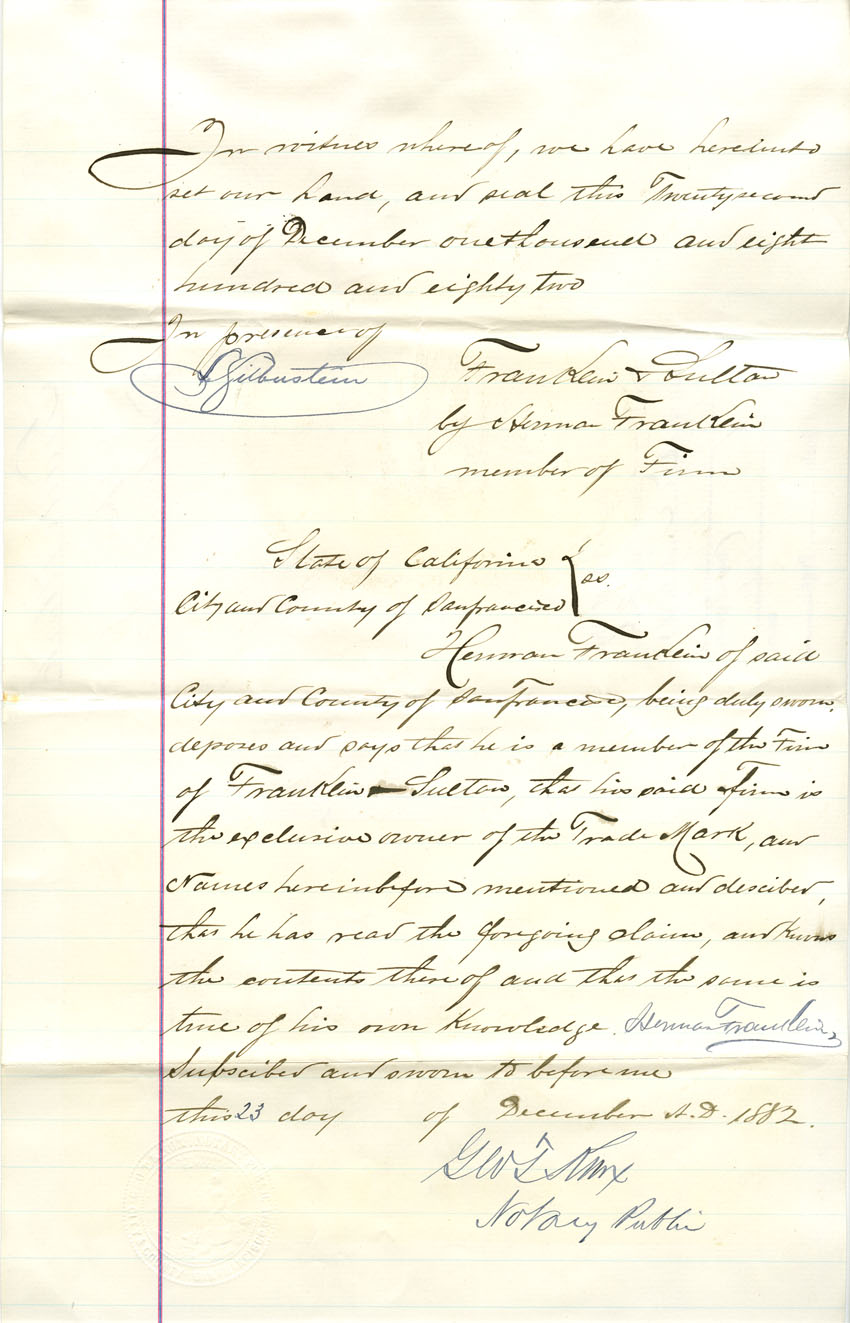 In witness where of, we have hereunto
set our hand, and seal this Twentysecond
day of December onethousend and eight
hundred and eighty two
In presence of
Franklin & Sultan
by Herman Franklin
member of Firm
State of California
City and County of Sanfrancisco } ss.
Herman Franklin of said
City and County of SanFrancisco, being duly sworn,
deposes and says that he is a member of the Firm
of Franklin & Sultan, that his said Firm is
the exclusive owner of the Trade Mark, and
Names hereinbefore mentioned and descibed,
that he has read the foregoing claim, and knows
the contents there of and that the same is
true of his own Knowledge. Herman Franklin
Subscibed and sworn to before me
this 23 day of December A.D. 1882.
Geo T Knox
Notary Public